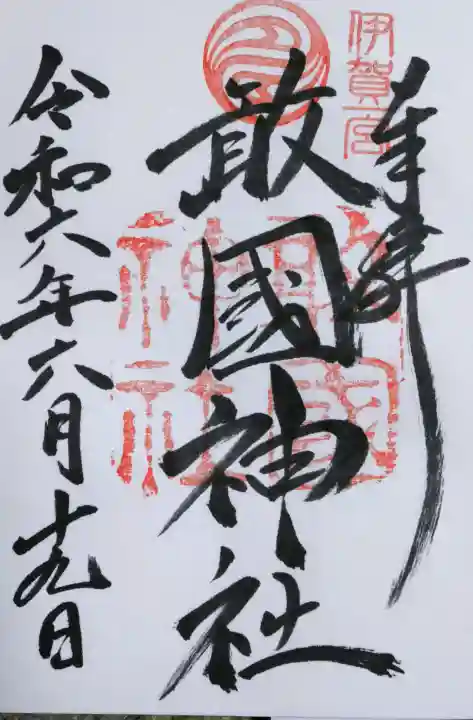 伊賀一宮
奉拝
敢國神社
令和六年六月十九日